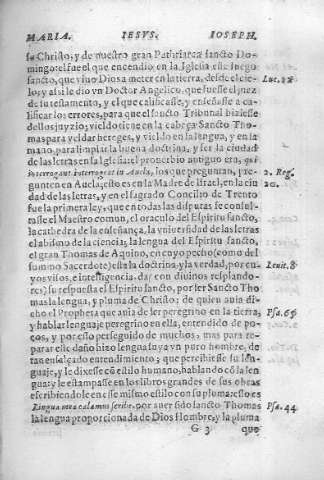 MARIA. IESVS. IOSEPH.
su Christo, y de nuestro gran Patriarca sancto Do-
mingo: el fue el que encendio en la Iglesia este fuego
sancto, que vino Dios a meter en la tierra, desde el cie- Luc. 12
lo; y assi le dio vn Doctor Angelico, que fuesse el juez
de su testamento, y el que calificasse, y enseñasse a ca-
lificar los errores, para que el sancto Tribunal hiziesse
dellos juyzio; vieldo tiene en la cabeça Sancto Tho-
mas para veldar hereges, y vieldo en la lengua, y en la
mano, para limpiar la buena doctrina, y ser la ciudad
de las letras en la Iglesia: el prouerbio antiguo era, qui
interrogant interrogent in Auela, los que preguntan, pre- 2. Reg.
gunten en Auela; esto es en la Madre de Israel, en la ciu 20.
dad de las letras, y en el sagrado Concilio de Trento
fue la primera ley, que en todas las disputas se consul-
tasse el Maestro comun, el oraculo del Espiritu sancto,
la cathedra de la enseñança, la vniuersidad de las letras
el abismo de la ciencia, la lengua del Espiritu sancto,
el gran Thomas de Aquino, en cuyo pecho (como del
summo Sacerdote) esta la doctrina, y la verdad, por cu- Leuit. 8.
yos visos, e intelligencia, da (con diuinos resplando-
res) su respuesta el Espiritu sancto, por ser Sancto Tho
mas la lengua, y pluma de Christo; de quien auia di-
cho el Propheta que auia de ser peregrino en la tierra, Psa. 68
y hablar lenguaje peregrino en ella, entendido de po-
cos, y por esso perseguido de muchos, mas para re-
parar este daño hizo lengua suya vn puro hombre, de
tan ensalçado entendimiento, que percibiesse su len-
guaje, y le dixesse cō estilo humano, hablando cō la len
gua: y le estampasse en los libros grandes de sus obras
escribiendole en esse mismo estilo con su pluma: esso es
Lingua mea calamus scribæ, por auer sido sancto Thomas Psa. 44.
la lengua proporcionada de Dios Hombre, y la pluma
G 3 que